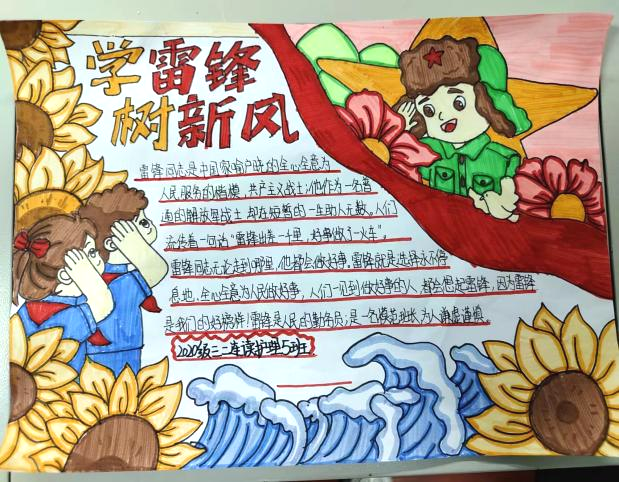 学雷锋
树新风
雷锋同志是中国家喻户晓的全心全意为
人民服务的楷模，共产主义战士；他作为一名普
通的解放军战士，却在短暂的一生助人无数。人们
流传着一句话“雷锋出差一千里，好事做了一火车”。
雷锋同志无论走到哪里，他都会做好事。雷锋就是选择永不停
息地，全心全意为人民做好事，人们一见到做好事的人，都会想起雷锋，因为雷锋
是我们的好榜样！雷锋是人民的勤务员；是一名模范班长为人谦虚谨慎
2020级三二连读护理5班